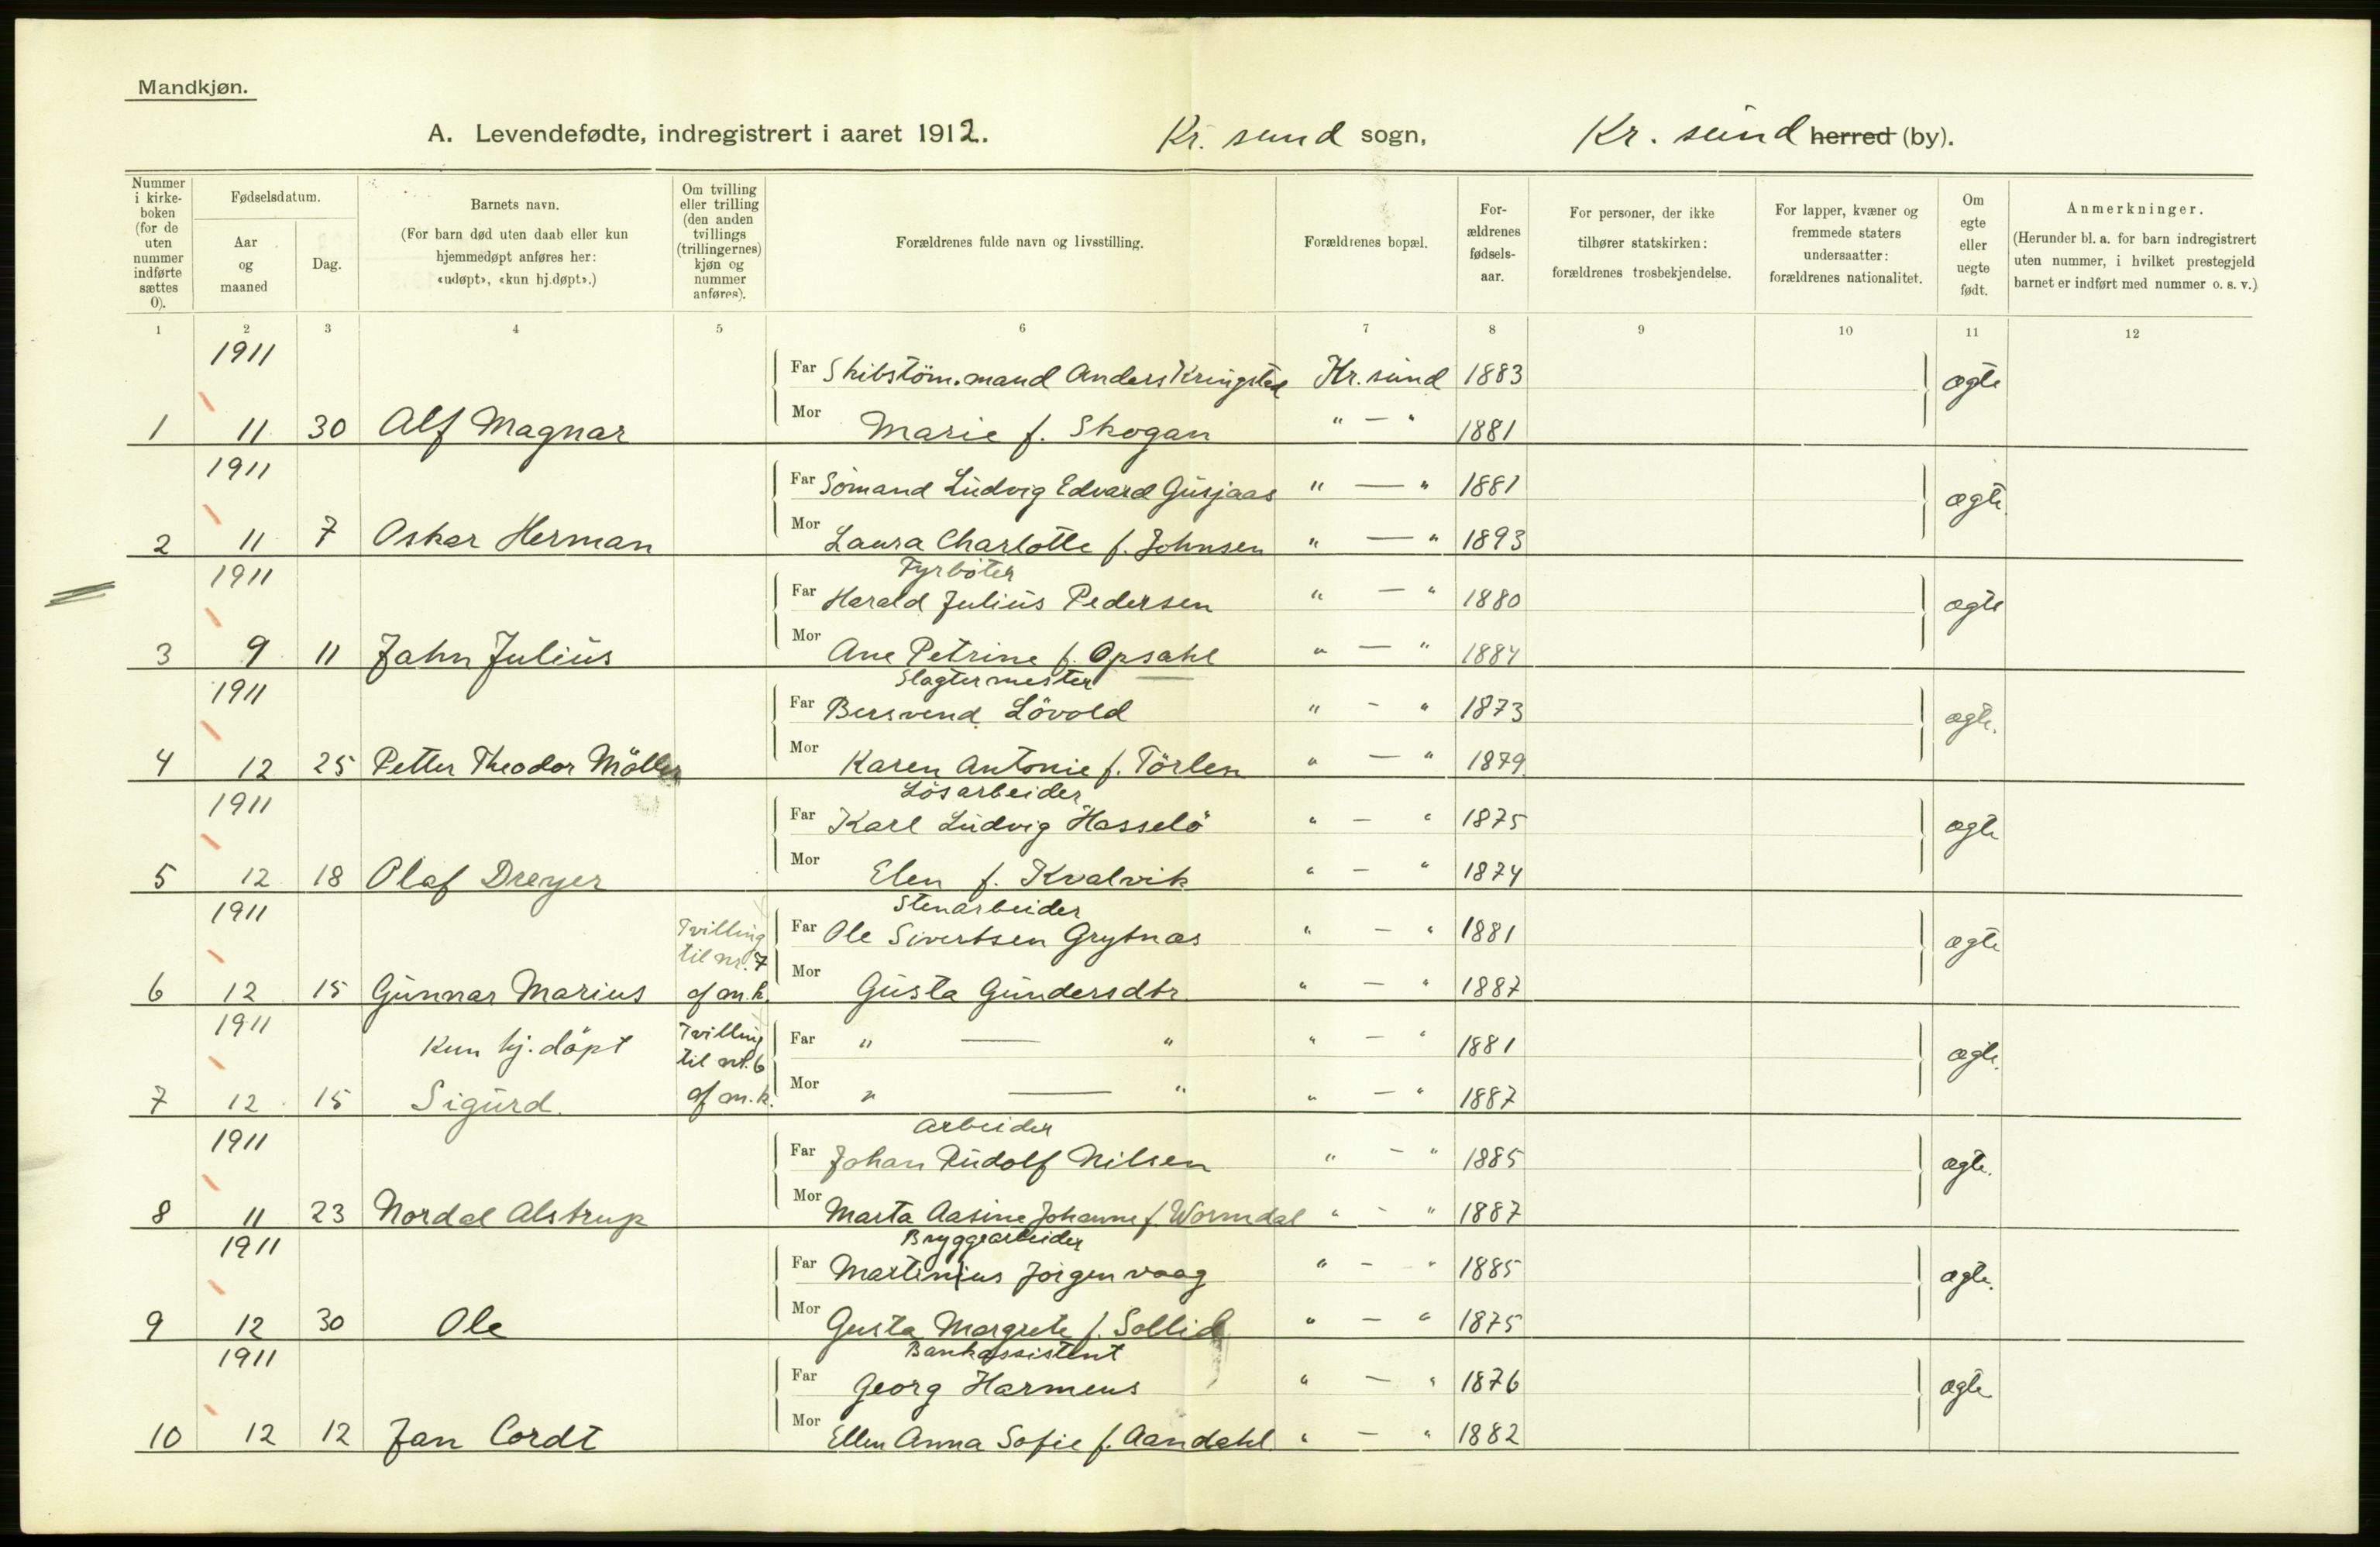 Mandkjøn.
A. Levendefødte, indregistrert i aaret 1912. Kr. sund sogn, Kr. sund herred (by).
Nummer i kirkeboken (for de uten nummer indførte sættes 0).
Fødselsdatum.
Aar og maaned
Dag.
Barnets navn.
(For barn død uten daab eller kun hjemmedøpt anføres her: «udøpt», «kun hj.døpt».)
Om tvilling eller trilling (den anden tvillings (trillingernes) kjøn og nummer anføres).
Forældrenes fulde navn og livsstilling.
Forældrenes bopæl.
For-ældrenes fødsels-aar.
For personer, der ikke tilhører statskirken: forældrenes trosbekjendelse.
For lapper, kvæner og fremmede staters undersaatter: forældrenes nationalitet.
Om egte eller uegte født.
Anmerkninger.
(Herunder bl. a. for barn indregistrert uten nummer, i hvilket prestegjeld barnet er indført med nummer o. s. v.)
1 2 3 4 5 6 7 8 9 10 11 12
1911
Far Skibstöm.mand Anders Kringstad Kr. sund 1883 ægte
1 11 30 Alf Magnar Mor Marie f. Skogan " — " 1881
1911
Far Sömand Ludvig Edvard Gusjaas " — " 1881 ægte
2 11 7 Oskar Herman Mor Laura Charlotte f. Johnsen " — " 1893
1911 Fyrböter
Far Harald Julius Pedersen " — " 1880 ægte
3 9 11 Jahn Julius Mor Ane Petrine f. Opsahl " — " 1884
1911 Slagtermester
Far Bersvend Lövold " - " 1873 ægte.
4 12 25 Petter Theodor Möller Mor Karen Antonie f. Törlen " — " 1879
1911 Lösarbeider
Far Karl Ludvig Hasselö " — " 1875 ægte
5 12 18 Olaf Dreyer Mor Elen f. Kvalvik " — " 1874
1911 Stenarbeider
Tvilling til nr. 7 Far Ole Sivertsen Grytnæs " — " 1881 ægte
6 12 15 Gunnar Marius af m.k. Mor Gusta Gundersdtr " — " 1887
1911 Kun hj. döpt Tvilling til nr. 6 Far " — " " — " 1881 ægte.
7 12 15 Sigurd. af m.k. Mor " — " " — " 1887
1911 Arbeider
Far Johan Rudolf Nilsen " - " 1885 ægte.
8 11 23 Nordal Alstrup Mor Marta Aasine Johanne f. Wormdal " - " 1887
1911 Bryggearbeider
Far Martinius Jörgenvaag " - " 1885 ægte.
9 12 30 Ole Mor Gusta Margrete f. Sollid " — " 1875
1911 Bankassistent
Far Georg Harmens " — " 1876 ægte
10 12 12 Jan Cordt Mor Ellen Anna Sofie f. Aandahl " — " 1882